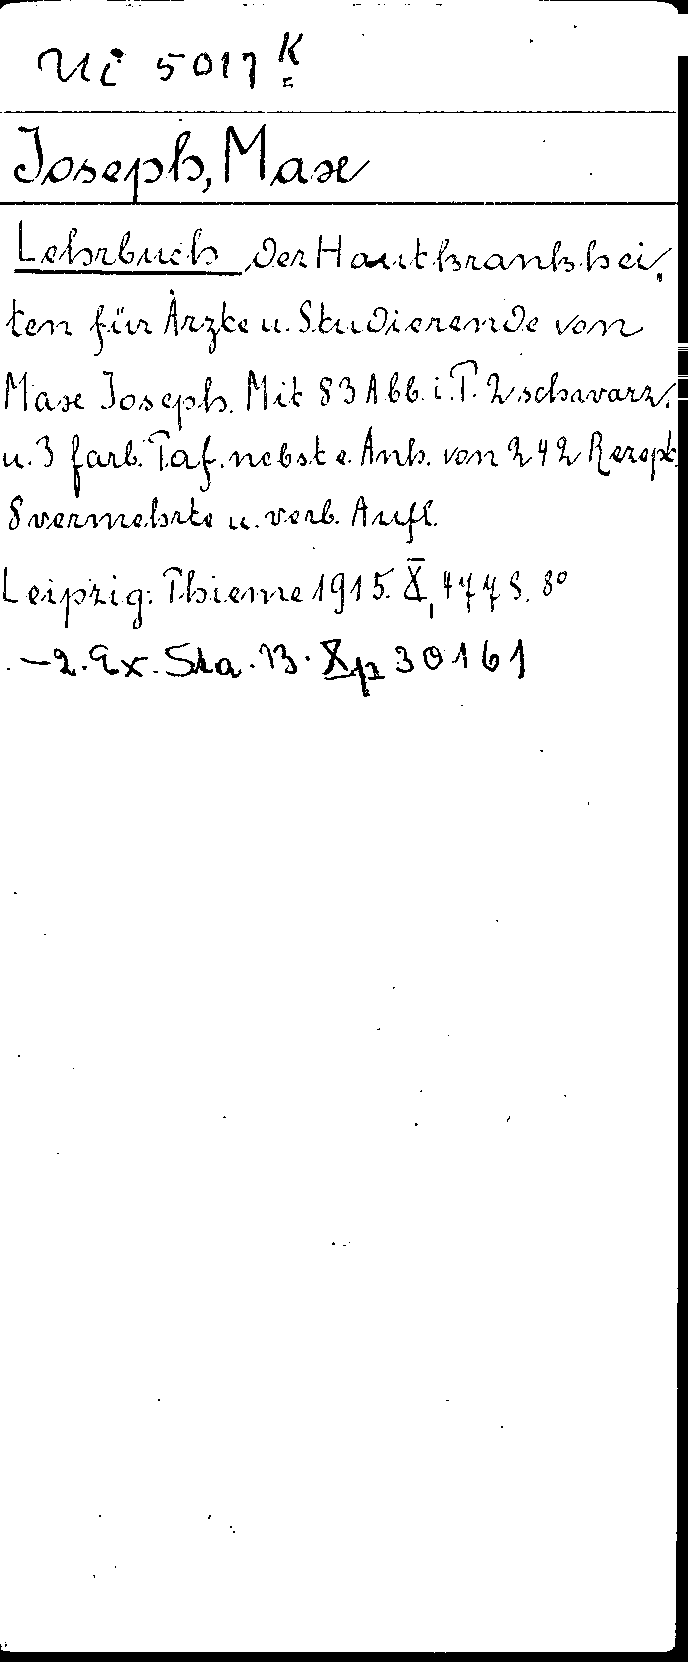 Ui 5017 K
Joseph, Max
Lehrbuch der Hautkrankhei,
ten für Ärzte u. Studierende von
Max Joseph. Mit 83 Abb. i. T. 2 schwarz.
u. 3 farb. Taf. nebst e. Anh. von 242 Rezept.
8 vermehrte u. verb. Aufl.
Leipzig: Thieme 1915. X, 477 S. 8°
– 2. Ex. Sta. B. Xp 30161